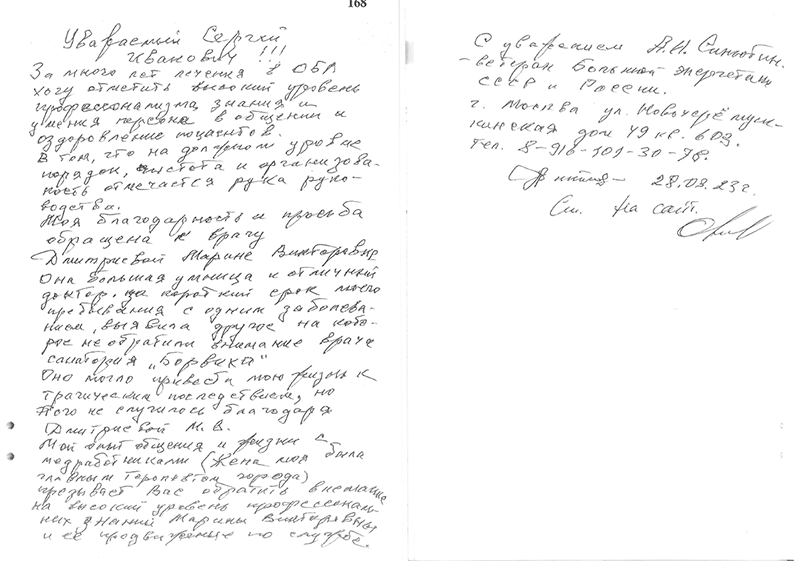 168
Уважаемый Сергей
Иванович!!!
За много лет лечения в ОБП
хочу отметить высокий уровень
профессионализма, знания и
умения персона в общении и
оздоровление пациентов.
В том, что на должном уровне
порядок, чистота и организова-
ность отмечается рука руко-
водства.
Моя благодарность и просьба
обращена к врачу
Дмитриевой Марине Викторовне
Она большая умница и отличный
доктор, за короткий срок моего
пребывания с одним заболева-
нием, выявила другое на кото-
рое не обратили внимание врачи
санатория „Борвиха"
Оно могло привести мою жизнь к
трагическим последствием, но
этого не случилось благодаря
Дмитриевой М.В.
Мой опыт общения и жизни с
медработниками (Жена моя была
главным терапевтом города)
призывает Вас обратить внимание
на высокий уровень профессионал-
ных знаний Марины Викторовны
и её продвижение по службе.
С уважением А.И.
- ветеран Большой энергетики
СССР и России.
г. Москва ул. Новочерёмуш-
кинская дом 49 кв. 603.
тел. 8-916-101-30-78.
28.08.23г.
См. на сайт.